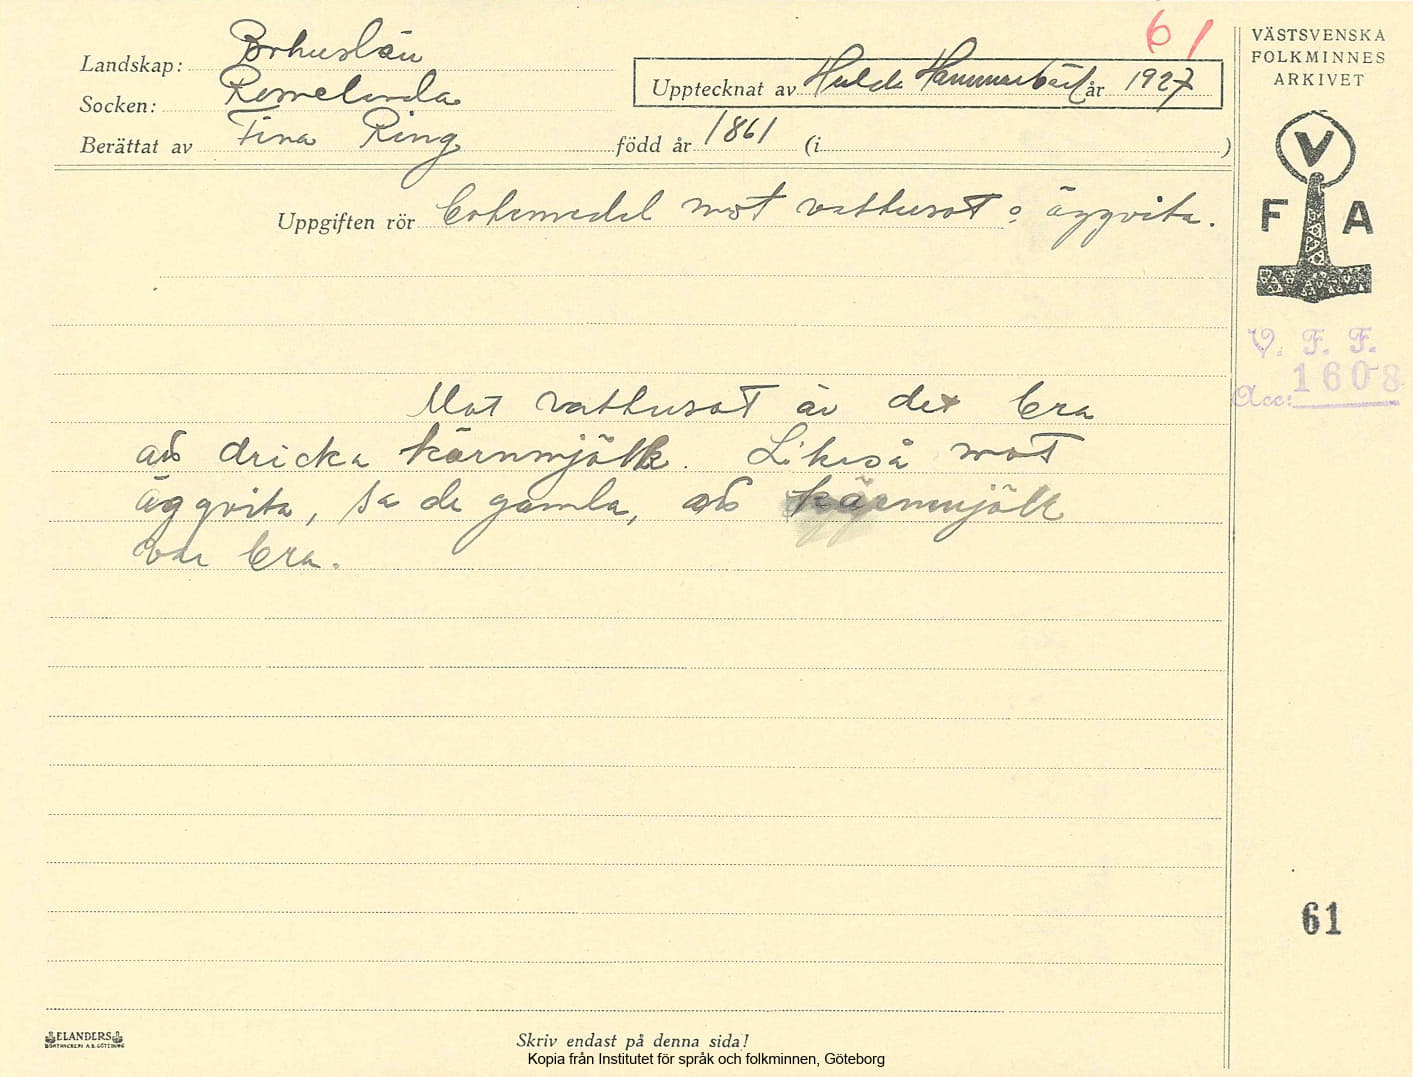 61
Landskap: Bohuslän
Socken: Romelanda
Upptecknat av Hulda Hammarbäck år 1927
Berättat av Tina Ring född år 1861 (i )
VÄSTSVENSKA
FOLKMINNES
ARKIVET
V
F A
Uppgiften rör Botemedel mot vattusot o äggvita.
V. F. F.
Acc: 1608
Mot vattusot är det bra
att dricka kärnmjölk. Likaså mot
äggvita, sa de gamla, att kärnmjölk
var bra.
61
ELANDERS
BOKTRYCKERI A.B. GÖTEBORG
Skriv endast på denna sida!
Kopia från Institutet för språk och folkminnen, Göteborg